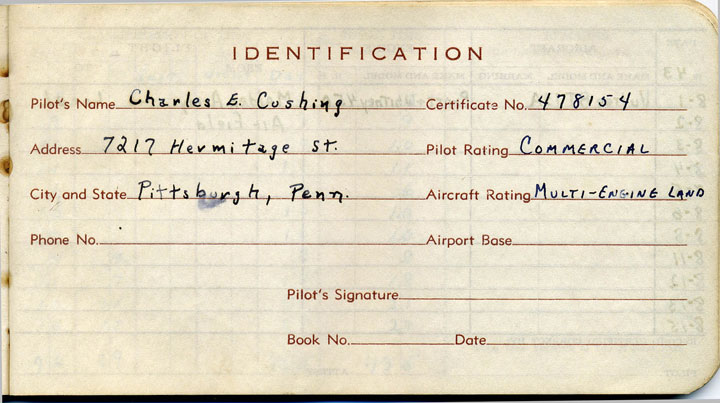 IDENTIFICATION
Pilot's Name Charles E. Cushing Certificate No. 478154
Address 7217 Hermitage St. Pilot Rating COMMERCIAL
City and State Pittsburgh, Penn. Aircraft Rating MULTI-ENGINE LAND
Phone No. Airport Base
Pilot's Signature
Book No. Date